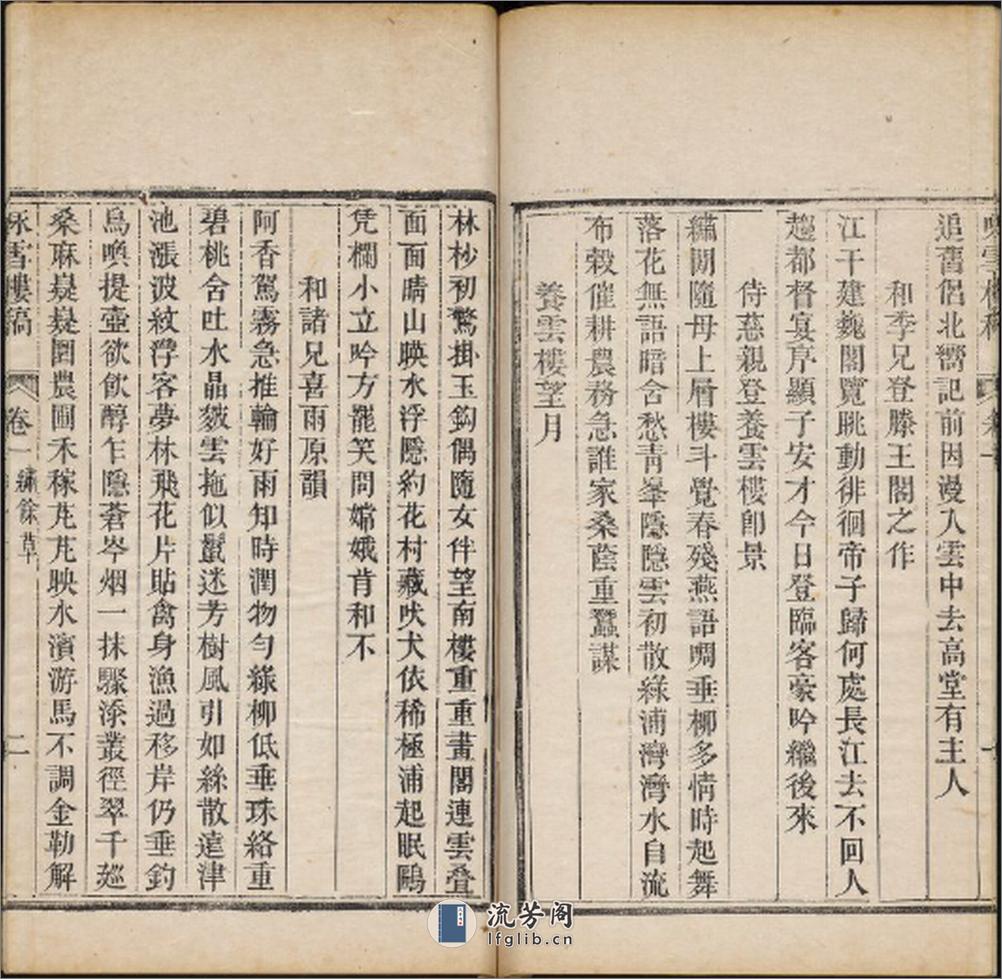 追舊侶北嚮記前因漫入雲中去高堂有主人
和季兄登滕王閣之作
江干建巍閣覽眺動徘徊帝子歸何處長江去不回人
趨都督宴序顯子安才今日登臨客豪吟繼後來
侍慈親登養雲樓卽景
繡閒隨母上層樓斗覺春殘燕語啁垂柳多情時起舞
落花無語暗含愁靑峯隱隱雲初散綠浦灣灣水自流
布穀催耕農務急誰家桑蔭重蠶謀
養雲樓望月
林杪初驚掛玉鈎偶隨女伴望南樓重重畫閣連雲疊
面面晴山暎水浮隱約花村藏吠犬依稀極浦起眠鷗
凭欄小立吟方罷笑問嫦娥肯和不
和諸兄喜雨原韻
阿香駕霧急推輪好雨知時潤物勻綠柳低垂珠絡重
碧桃含吐水晶皴雲拖似鬟迷芳樹風引如絲散遠津
池漲波紋浮客夢林飛花片貼禽身漁過移岸仍垂釣
鳥喚提壺欲飲醇乍隱蒼岑烟一抹驟添叢徑翠千廵
桑麻嶷嶷圍農圃禾稼芃芃映水濱游馬不調金勒解
咏雪樓稿 卷一 繡餘草 二